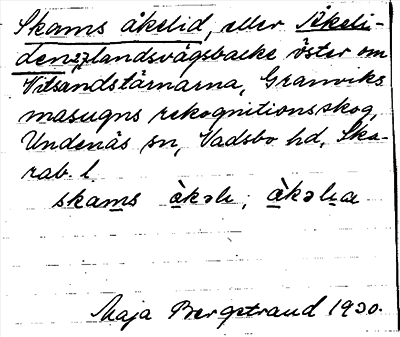 Skams åkelid, eller Åkeli-
den, landsvägsbacke öster om
Vitsandstärnarna, Granviks
masugns rekognitionsskog,
Undenäs sn, Vadsbo hd, Ska-
rab. l.
skams àkəlɩ; àkəlɩa
Maja Bergstrand 1930.